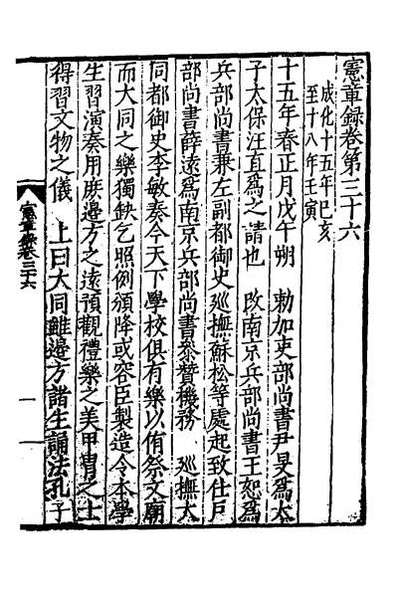 憲章録卷第三十六
成化十五年己亥
至十八年壬寅
十五年春正月戊午朔　勑加吏部尚書尹旻爲太
子太保汪直爲之請也　改南京兵部尚書王恕爲
兵部尚書兼左副都御史巡撫蘇松等處起致仕戸
部尚書薛遠爲南京兵部尚書叅贊機務　巡撫大
同都御史李敏奏今天下學校俱有樂以侑祭文廟
而大同之樂獨缺乞照例頒降或容臣製造令本學
生習演奏用庶邉方之遠預觀禮樂之美甲冑之士
得習文物之儀　上曰大同雖邉方諸生誦法孔子
憲章録卷三十六
一